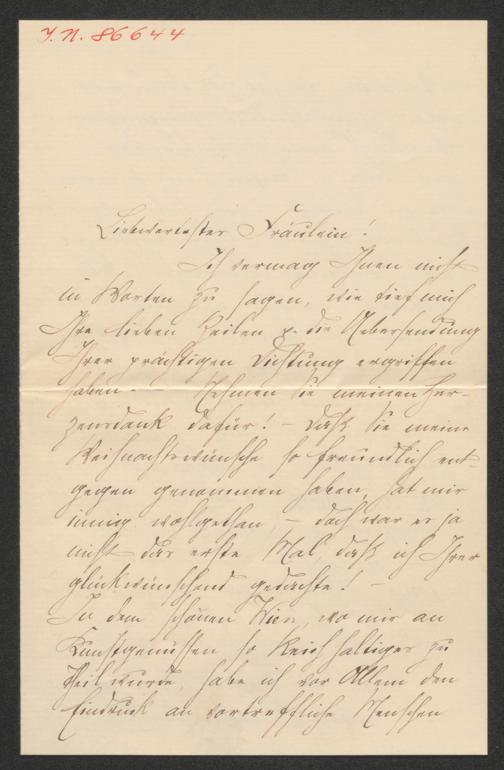 I. N. 86644
Liebwertestes Fräulein!
Ich vermag Ihnen nicht
in Worten zu sagen, wie tief mich
Ihre lieben Zeilen u. die Uebersendung
Ihrer prächtigen Dichtung ergriffen
haben. — Nehmen Sie meinen Her-
zensdank dafür! — Daß Sie meine
Weihnachtswünsche so freundlich ent-
gegen genommen haben, hat mir
innig wohlgethan, — doch war es ja
nicht das erste Mal, daß ich Ihrer
glückwünschend gedachte! —
In dem schönen Wien, wo mir an
Kunstgenüssen so Reichhaltiges zu
Theil wurde, habe ich vor Allem den
Eindruck an vortreffliche Menschen